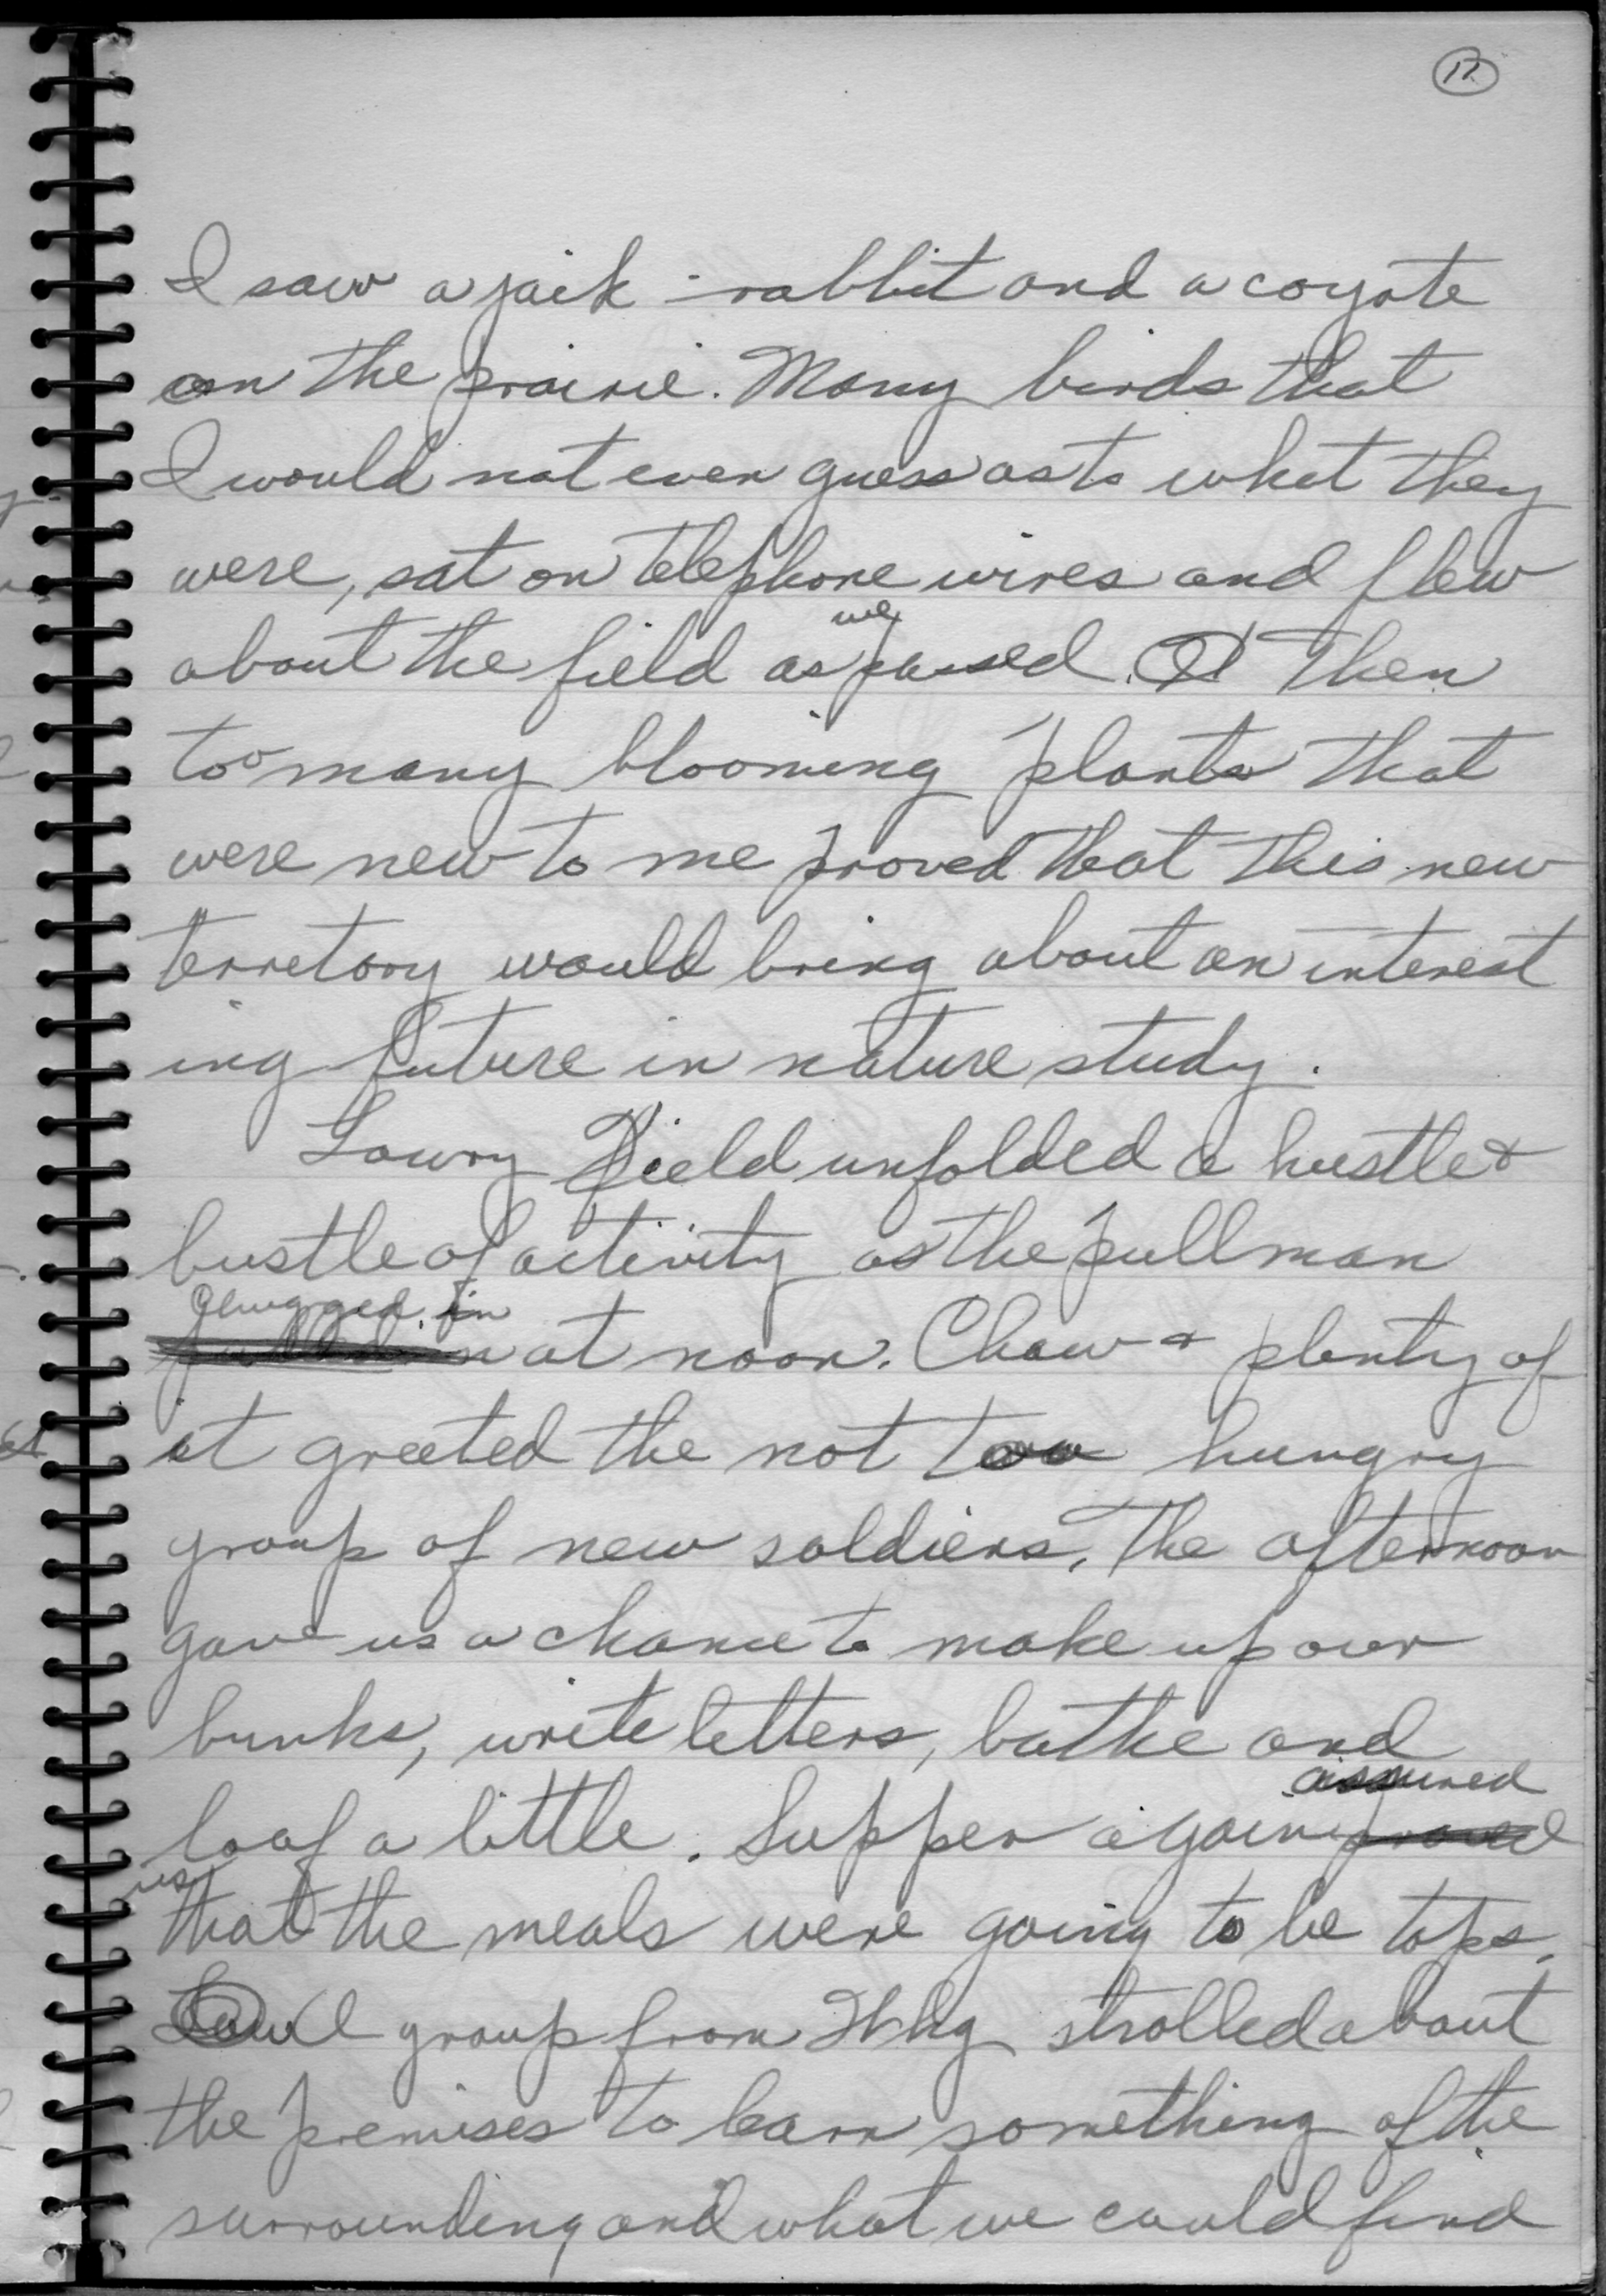 17
I saw a jack-rabbit and a coyote
on the prairie. Many birds that
I would not even guess as to what they
were, sat on telephone wires and flew
about the field as we passed. Then
too many blooming plants that
were new to me proved that this new
terretory would bring about an interest
ing future in nature study.
Lowry Field unfolded a hustle &
bustle of activity as the pullman
chugged in
at noon. Chow & plenty of
it greeted the not too hungry
group of new soldiers. The afternoon
gave us a chance to make up our
bunks, write letters, bathe and
loaf a little. Supper again assured
us that the meals were going to be tops.
group from strolled about
the premises to learn something of the
surrounding and what we could find